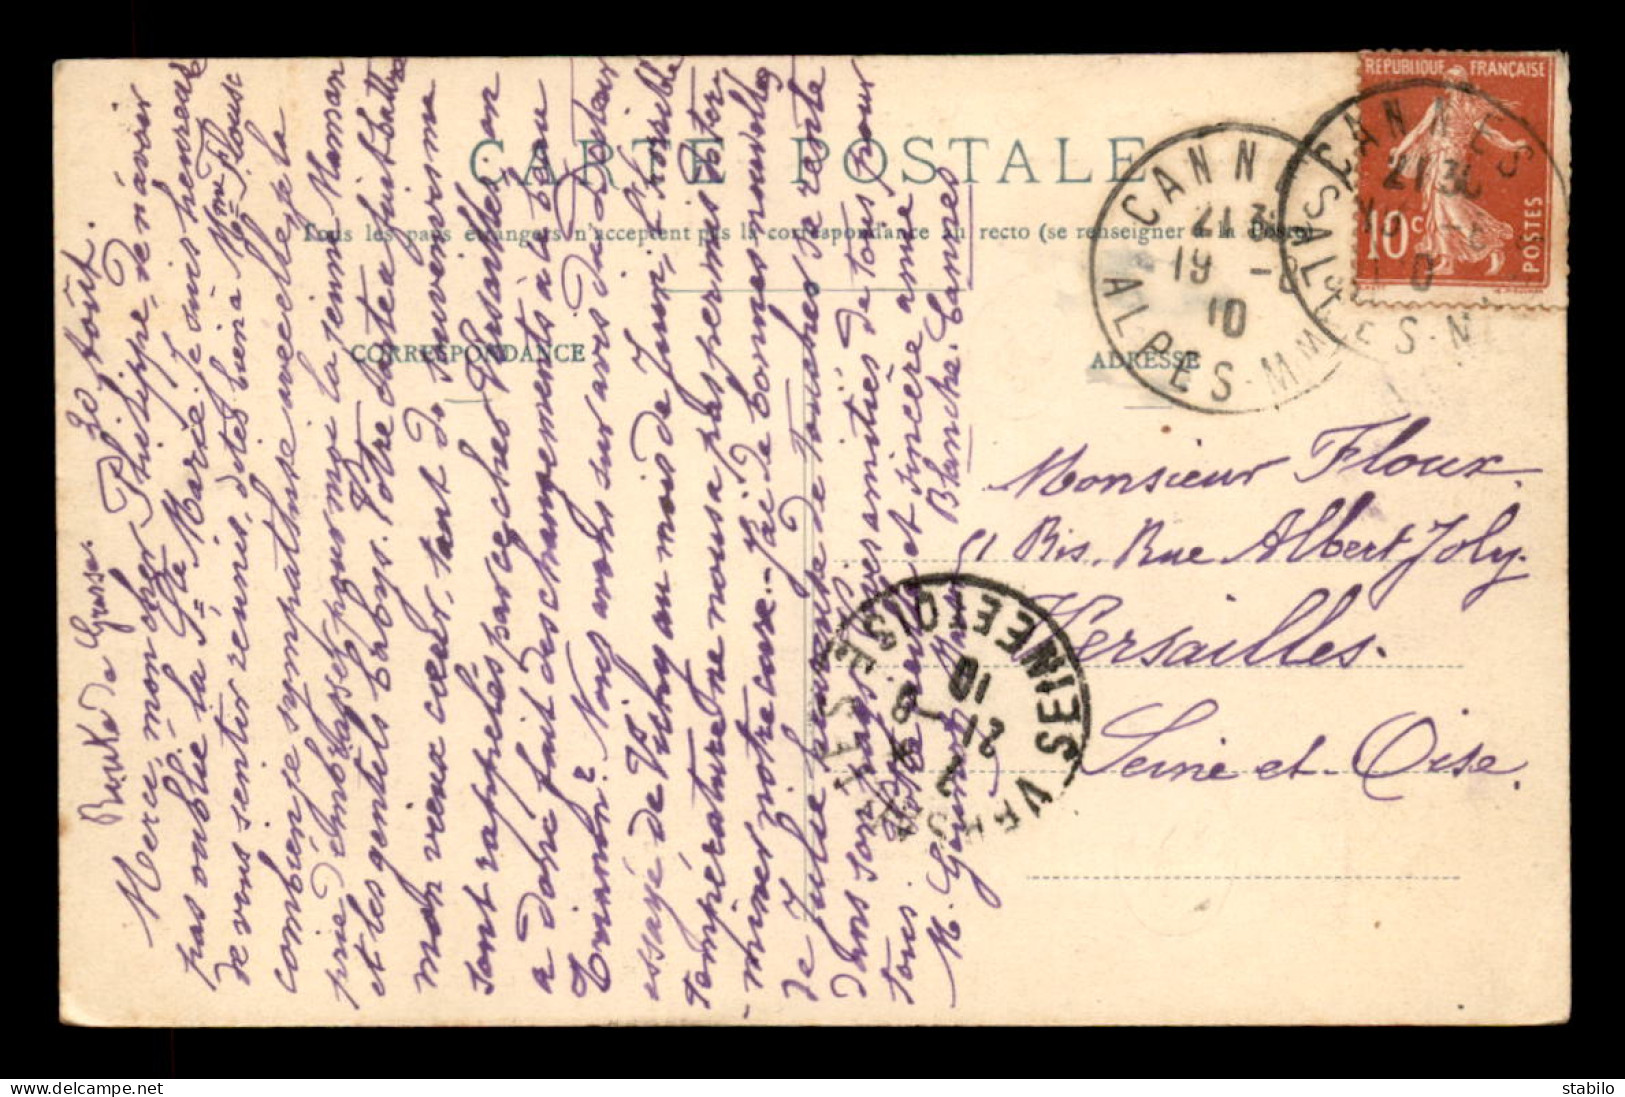 CARTE POSTALE
Tous les pays étrangers n'acceptent pas la correspondance au recto (se renseigner à la Poste)
CORRESPONDANCE
ADRESSE
REPUBLIQUE FRANÇAISE
10c
POSTES
CANNES
21 30
19 - 8
10
ALPES-MMES
CANNES
21 30
10
ALPES-M
Route de Grasse
20 Août.
Merci, mon cher Philippe, de n'avoir
pas oublié la Ste Marie. Je suis heureuse
de vous sentir réunis, dites bien à Mme Floux
combien je sympathise avec elle, je la
prie d'embrasser pour moi la jeune Maman
et les gentils babys. Votre carte a fait battre
mon vieux cœur, tant de souvenirs me
sont rappelés par ce cher Versailles, on
a donc fait des changements à ce beau
Trianon? Nous avons sur avis du docteur
essayé de Vichy au mois de Juin, l'horrible
température ne nous a pas permis de ter-
-miner notre cure. J'ai de bonnes nouvelles
de Julie, Jeanne de Touchres se repose
dans son
amitiés de tous pour
tous. Votre vieille et sincère amie
M. Guérin
Blanche. Cannes
Monsieur Floux.
51 Bis, Rue Albert Joly.
Versailles.
Seine et Oise.
VERSAILLES
21 - 8
10
SEINE ET OISE
stabilo